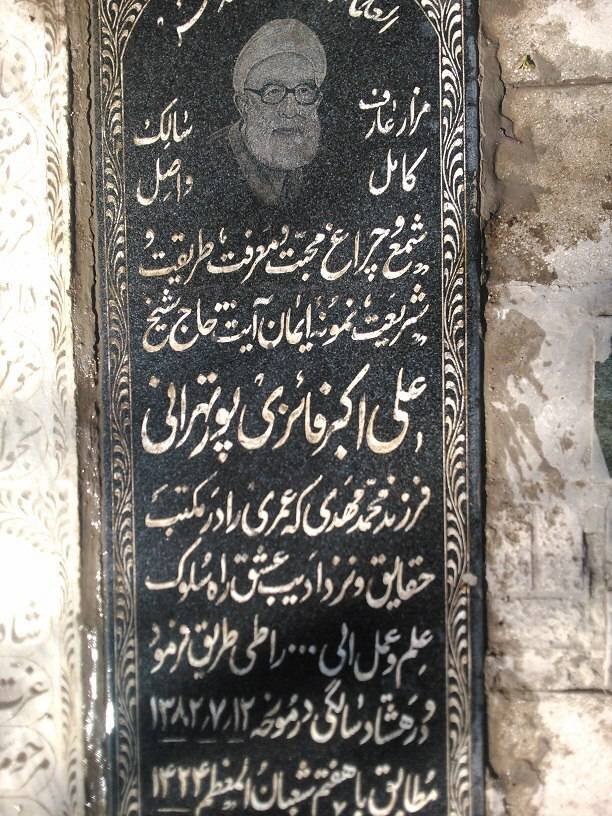 مزار عارف
سالک
کامل
واصل
شمع و چراغ محبت و معرفت طریقت و
شریعت نمونه ایمان آیت ... حاج شیخ
علی اکبر فائزی پور تهرانی
فرزند محمد مهدی که عمری را در مکتب
حقایق و نزد ادیب عشق راه سلوک
علم و عمل الی ... را طی طریق فرمود
و در هشتاد سالگی در مورخه ۱۳۸۲٫۷٫۱۲
مطابق با هفتم شعبان المعظم ۱۴۲۴